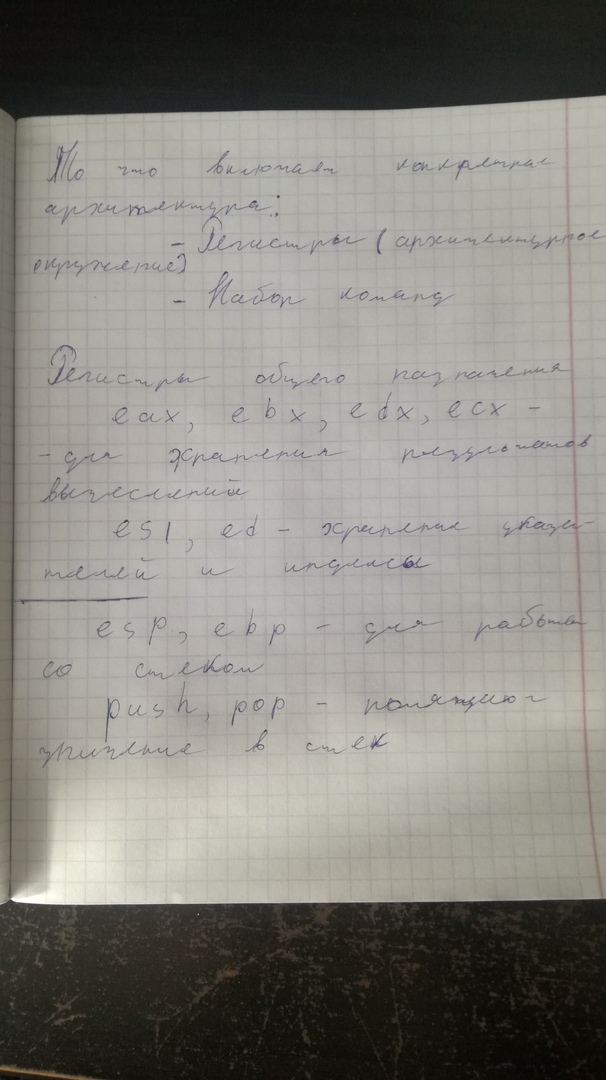 То что включает конкретная
архитектура:
- Регистры (архитектурное
окружение)
- Набор команд
Регистры общего назначения
eax, ebx, edx, ecx -
- для хранения результатов
вычеслений
esi, ed - хранение указа-
телей и индексы
esp, ebp - для работы
со стеком
push, pop -
значение в стек